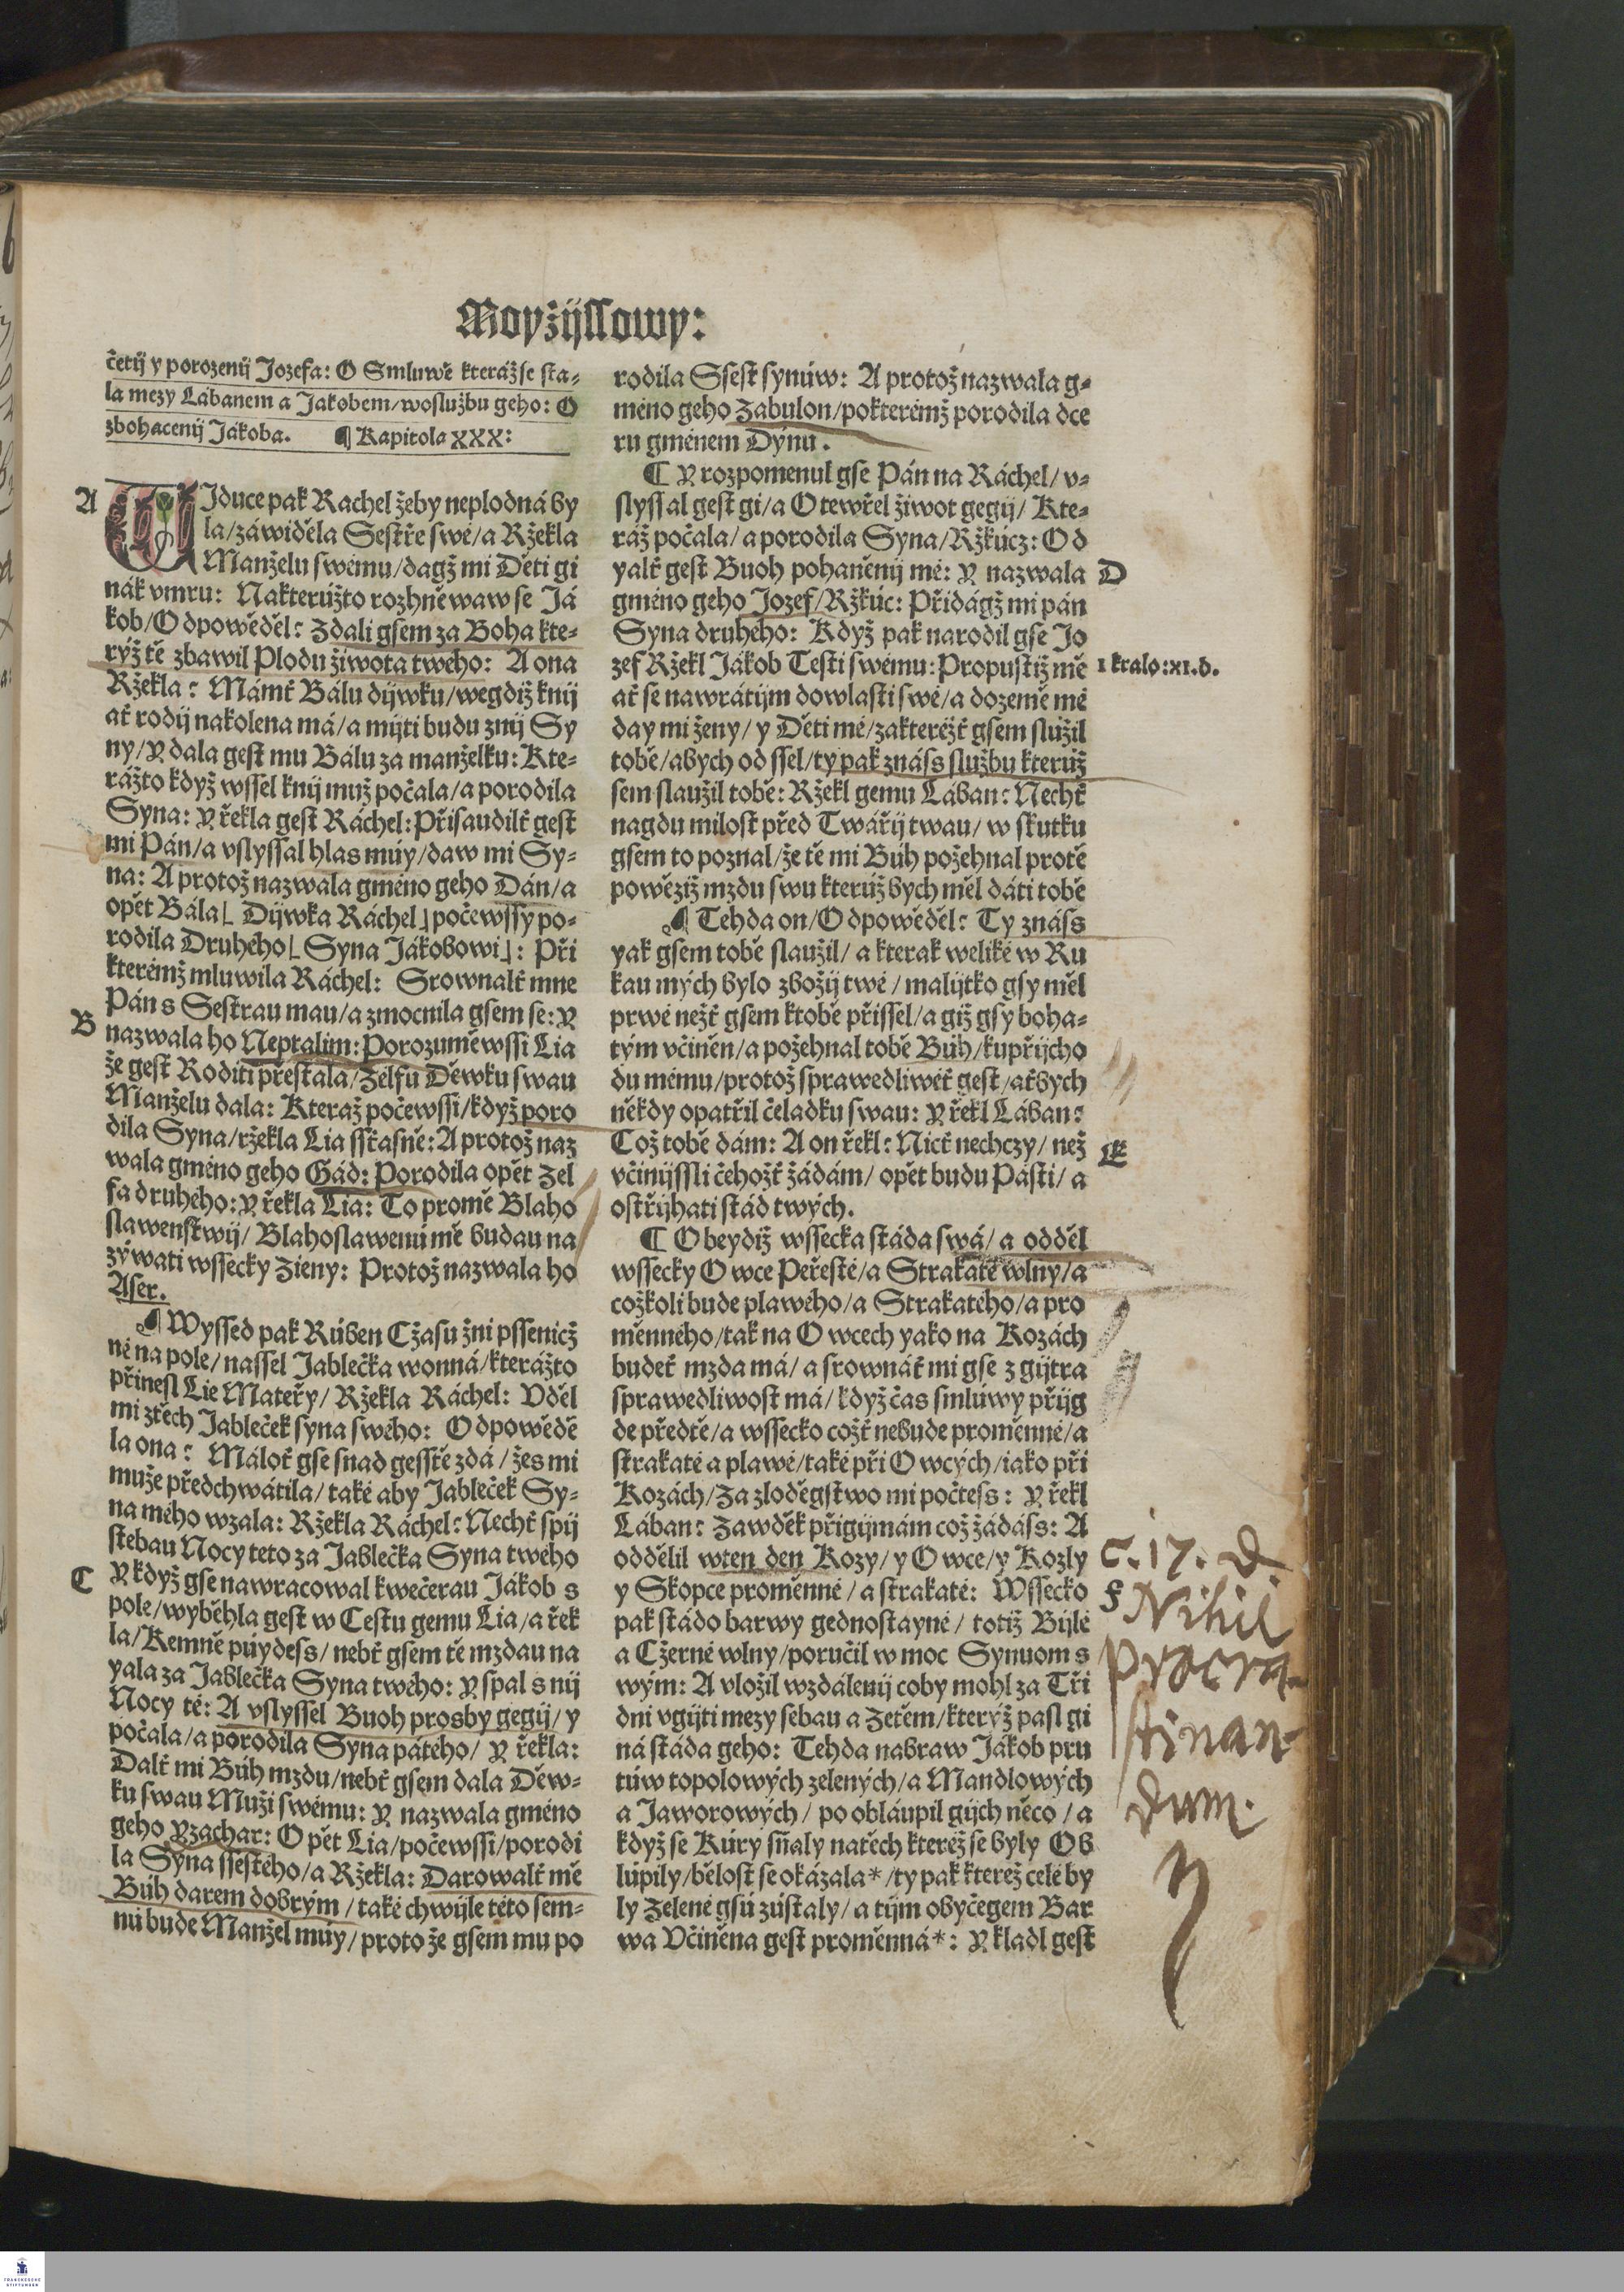 Moyžijssowy:
četij y porozenij Jozefa: O Smluwě kterážse sta⸗
la mezy Lábanem a Jakobem/woslužbu geho: O
zbohacenij Jákoba. ¶ Kapitola XXX:
A
WJduce pak Rachel žeby neplodná by
la/záwiděla Sestře swé/a Ržekla
Manželu swému/dagž mi Děti gi
nák vmru: Nakterúžto rozhněwaw se Já
kob/Odpowěděl: Zdali gsem za Boha kte⸗
rýž tě zbawil Plodu žiwota twého: A ona
Ržekla: Mámť Bálu dijwku/wegdiž knij
ať rodij nakolena má/a mýti budu znij Sy
ny/Y dala gest mu Bálu za manželku: Kte⸗
rážto když wssel knij muž počala/a porodila
Syna: Y řekla gest Ráchel: Přisaudilť gest
mi Pán/a vslyssal hlas múy/daw mi Sy⸗
na: A protož nazwala gméno geho Dán/a
opět Bála⌊ Dijwka Ráchel⌋ počewssy po⸗
rodila Druhého⌊ Syna Jákobowi⌋: Při
kterémž mluwila Ráchel: Srownalť mne
Pán s Sestrau mau/a zmocnila gsem se: Y
B
nazwala ho Neptalim: Porozuměwssi Lia
že gest Roditi přestala/Zelfu Děwku swau
Manželu dala: Kteraž počewssi/když poro
dila Syna/ržekla Lia sstasně: A protož naz
wala gméno geho Gád: Porodila opět Zel
fa druhého: Y řekla Lia: To promě Blaho
slawenstwij/ Blahoslawenú mě budau na
zýwati wssecky Zieny: Protož nazwala ho
Aser.
¶ Wyssed pak Rúben Cžasu žni pssenicž
né na pole/ nassel Jablečka wonná/kterážto
přinesl Lie Mateřy/ Ržekla Ráchel: Vděl
mi ztěch Jableček syna swého: Odpowědě
la ona: Máloť gse snad gesstě zdá/žes mi
muže předchwátila/ také aby Jableček Sy⸗
na mého wzala: Ržekla Ráchel: Nechť spij
stebau Nocy teto za Jablečka Syna twého
C
Y když gse nawracowal kwečerau Jákob s
pole/wyběhla gest w Cestu gemu Lia/a řek
la/Kemně púydess/ nebť gsem tě mzdau na
yala za Jablečka Syna twého: Y spal s nij
Nocy té: A vslyssel Buoh prosby gegij/ y
počala/a porodila Syna pátého/ Y řekla:
Dalť mi Búh mzdu/nebť gsem dala Děw⸗
ku swau Muži swému: Y nazwala gméno
geho Yzachar: Opět Lia/počewssi/porodi
la Syna ssestého/a Ržekla: Darowalť mě
Búh darem dobrým/ také chwijle této sem⸗
nú bude Manžel múy/ proto že gsem mu po
rodila Ssest synúw: A protož nazwala g⸗
méno geho Zabulon/pokterémž porodila dce
ru gménem Dýnu.
¶ Y rozpomenul gse Pán na Ráchel/ v⸗
slyssal gest gi/a Otewřel žiwot gegij/ Kte⸗
ráž počala/a porodila Syna/Ržkúcz: Od
yalť gest Buoh pohaněnij mé: Y nazwala
D
gméno geho Jozef/Ržkúc: Přidágž mi pán
Syna druhého: Když pak narodil gse Jo
zef Ržekl Jákob Testi swému: Propustiž mě
1 kralo: xi. d.
ať se nawrátijm dowlasti swé/a dozemě mé
day mi ženy/ y Děti mé/zakteréžť gsem slúžil
tobě/abych odssel/ty pak znáss službu kterúž
sem slaužil tobě: Ržekl gemu Lában: Nechť
nagdu milost před Twářij twau/ w skutku
gsem to poznal/že tě mi Búh požehnal protě
powěziž mzdu swu kterúž bych měl dáti tobě
¶ Tehda on/Odpowěděl: Ty znáss
yak gsem tobě slaužil/ a kterak weliké w Ru
kau mých bylo zbožij twé/ malijtko gsy měl
prwé nežť gsem ktobě přissel/a giž gsy boha⸗
tým včiněn/a požehnal tobě Búh/kupřijcho
du mému/protož sprawedliwéť gest/aťbych
někdy opatřil čeladku swau: Y řekl Lában:
Což tobě dám: A on řekl: Nicť nechczy/ než
E
včinijssli čehožť žádám/ opět budu Pásti/ a
ostřijhati stád twých.
¶ Obeydiž wssecka stáda swá/ a odděl
wssecky Owce Peřesté/a Strakaté wlny/a
cožkoli bude plawého/a Strakatého/a pro
měnného/tak na Owcech yako na Kozách
budeť mzda má/ a srownáť mi gse z gijtra
sprawedliwost má/ když čas smlúwy přijg
de předtě/a wssecko cožť nebude proměnné/a
strakaté a plawé/také při Owcých/iako při
Kozách/Za zloděgstwo mi počtess: Y řekl
Lában: Zawděk přigijmám což žádáss: A
oddělil wten den Kozy/ y Owce/y Kozly
y Skopce proměnné/ a strakaté: Wssecko
pak stádo barwy gednostayné/ totiž Bijlé
a Cžerné wlny/poručil w moc Synuom s
wým: A vložil wzdálenij coby mohl za Tři
dni vgijti mezy sebau a Zetěm/kterýž pasl gi
ná stáda geho: Tehda nabraw Jákob pru
túw topolowých zelených/a Mandlowých
a Jaworowých/ po obláupil gijch něco/ a
když se Kúry sňaly natěch kteréž se byly Ob
lúpily/bělost se okázala*/ty pak kteréž celé by
ly Zelené gsú zústaly/ a tijm obyčegem Bar
wa Včiněna gest proměnná*: Y kladl gest
C. 17. D.
Nihil
procra⸗
stinan⸗
dum.
FRANCKESCHE
STIFTUNGEN